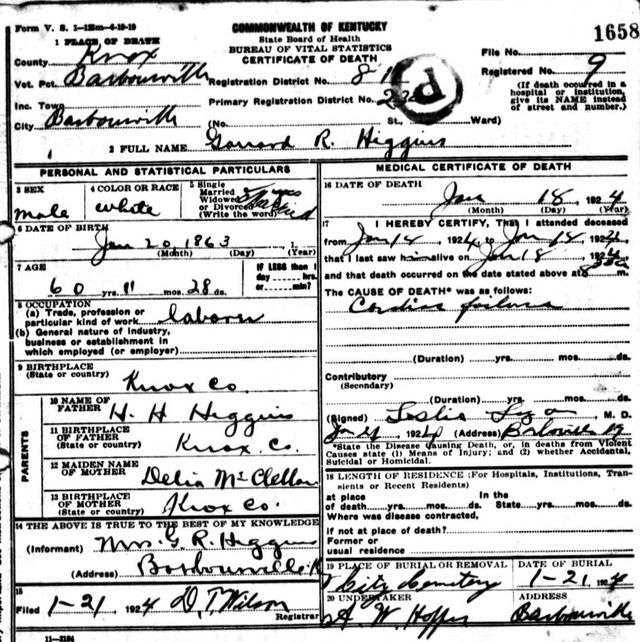 Form V. S. 1-15m-6-19-19
COMMONWEALTH OF KENTUCKY
State Board of Health
BUREAU OF VITAL STATISTICS
CERTIFICATE OF DEATH
1658
1 PLACE OF DEATH
County Knox
Vot. Pct. Barbourville
Inc. Town
City Barbourville
Registration District No. 8
Primary Registration District No.
(No. St., Ward)
P
File No.
Registered No. 9
(If death occurred in a
hospital or institution,
give its NAME instead
of street and number.)
2 FULL NAME Garrard R. Higgins
PERSONAL AND STATISTICAL PARTICULARS
3 SEX
male
4 COLOR OR RACE
white
5 Single
Married
Widowed
or Divorced
(Write the word)
6 DATE OF BIRTH
Jan 20, 1863, 1
(Month) (Day) (Year)
7 AGE
60 yrs. 11 mos. 28 ds.
IF LESS than 1
day hrs.
or min?
8 OCCUPATION
(a) Trade, profession or
particular kind of work laborer
(b) General nature of industry,
business or establishment in
which employed (or employer)
9 BIRTHPLACE
(State or country) Knox Co.
PARENTS
10 NAME OF
FATHER H. H. Higgins
11 BIRTHPLACE
OF FATHER
(State or country) Knox C.
12 MAIDEN NAME
OF MOTHER Delia McClellan
13 BIRTHPLACE
OF MOTHER
(State or country) Knox Co.
14 THE ABOVE IS TRUE TO THE BEST OF MY KNOWLEDGE
(Informant) Mrs. G. R. Higgins
(Address) Barbourville K
15
Filed 1-21, 1924 D. T. Wilson
Registrar
11-3184
MEDICAL CERTIFICATE OF DEATH
16 DATE OF DEATH
Jan 18, 1924
(Month) (Day) (Year)
17 I HEREBY CERTIFY, That I attended deceased
from Jan 14, 1924 to Jan 18, 1924
that I last saw him alive on Jan 18, 1924
and that death occurred on the date stated above at 8
The CAUSE OF DEATH* was as follows:
Cardiac failure
(Duration) yrs. mos. ds.
Contributory
(Secondary)
(Duration) yrs. mos. ds.
(Signed) Leslie Logan, M. D.
Jan 21, 1924 (Address) Barbourville Ky
*State the Disease Causing Death, or, in deaths from Violent
Causes state (1) Means of Injury; and (2) whether Accidental,
Suicidal or Homicidal.
18 LENGTH OF RESIDENCE (For Hospitals, Institutions, Tran-
sients or Recent Residents)
at place In the
of death yrs. mos. ds. State yrs. mos. ds.
Where was disease contracted,
if not at place of death?
Former or
usual residence
19 PLACE OF BURIAL OR REMOVAL
City Cemetery
DATE OF BURIAL
1-21, 1924
20 UNDERTAKER
A W Hopper
ADDRESS
Barbourville